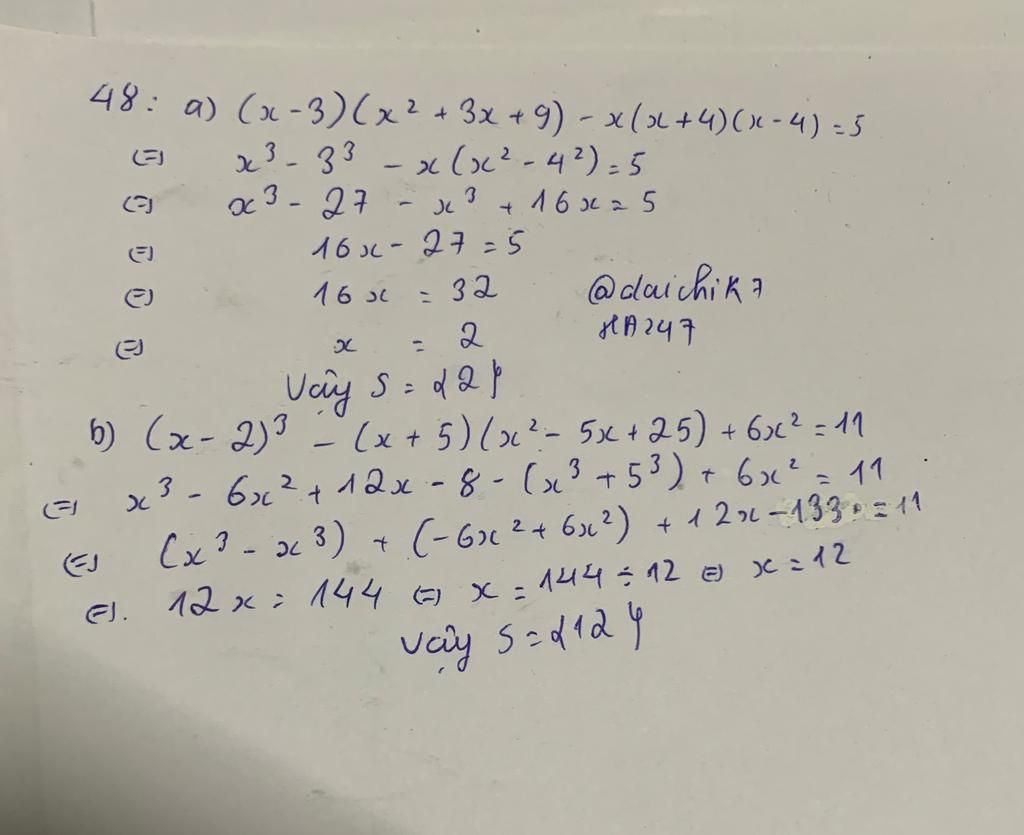 48: a) (x-3)(x² + 3x + 9) - x(x+4)(x-4) = 5
(=) x³ - 3³ - x(x² - 4²) = 5
(=) x³ - 27 - x³ + 16x = 5
(=) 16x - 27 = 5
(=) 16x = 32
@daichik7
HA247
(=) x = 2
Vậy S = {2}
b) (x-2)³ - (x+5)(x² - 5x + 25) + 6x² = 11
(=) x³ - 6x² + 12x - 8 - (x³ + 5³) + 6x² = 11
(=) (x³ - x³) + (-6x² + 6x²) + 12x - 133 = 11
(=). 12x = 144 (=) x = 144 ÷ 12 (=) x = 12
Vậy S = {12}